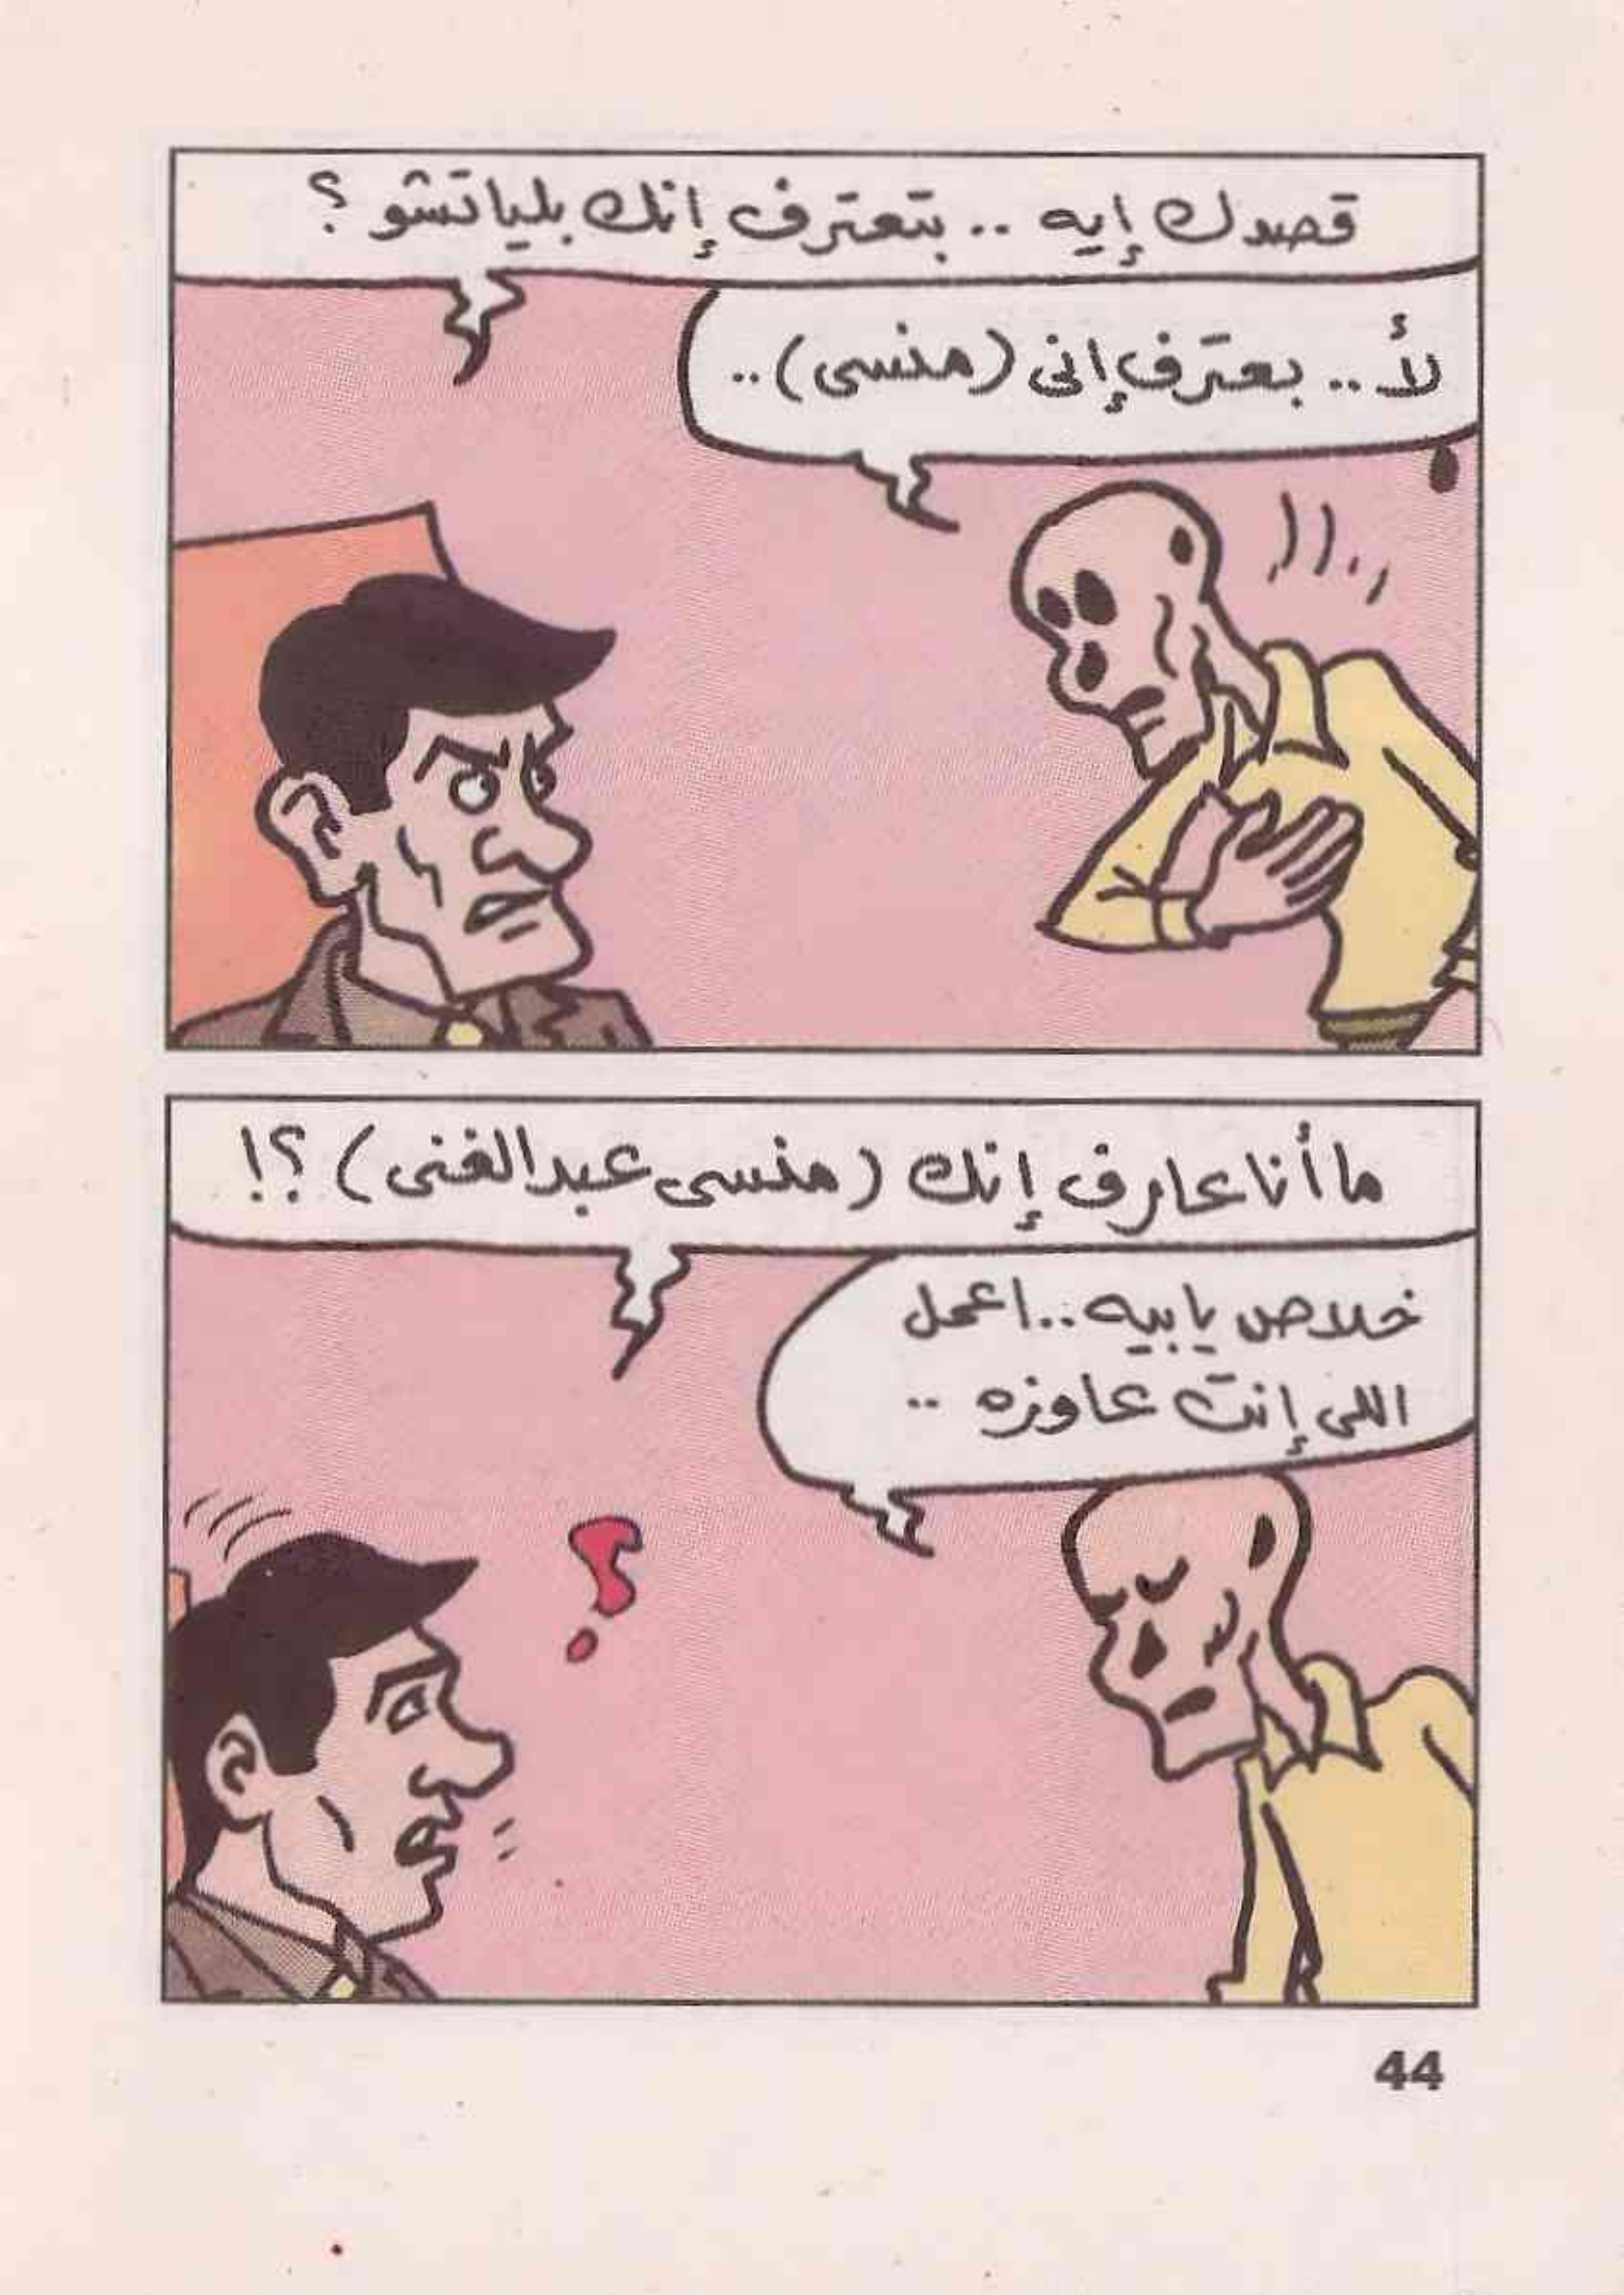 قصدك إيه .. بتعترف إنك بلياتشو ؟
لأ .. بعترف إنى (منسى) ..
ما أنا عارف إنك (منسى عبدالغنى) ؟!
خلاص يا بيه .. اعمل
اللى إنت عاوزه ..
44